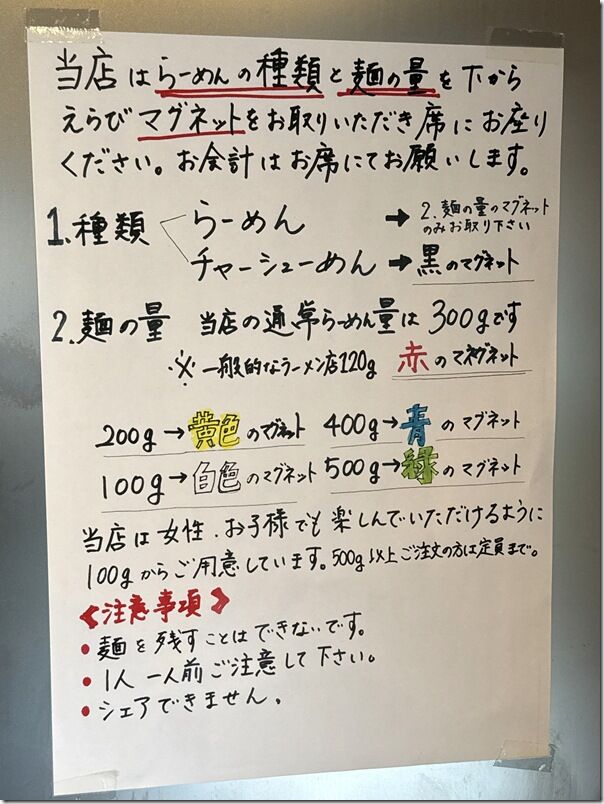 当店はらーめんの種類と麺の量を下から
えらびマグネットをお取りいただき席にお座り
ください。お会計はお席にてお願いします。
1.種類 らーめん → 2.麺の量のマグネットのみお取り下さい
チャーシューめん → 黒のマグネット
2.麺の量 当店の通常らーめん量は300gです
※一般的なラーメン店120g 赤のマネグネット
200g→黄色のマグネット 400g→青のマグネット
100g→白色のマグネット 500g→緑のマグネット
当店は女性、お子様でも楽しんでいただけるように
100gからご用意しています。500g以上ご注文の方は定員まで。
《注意事項》
●麺を残すことはできないです。
●1人一人前ご注意して下さい。
●シェアできません。